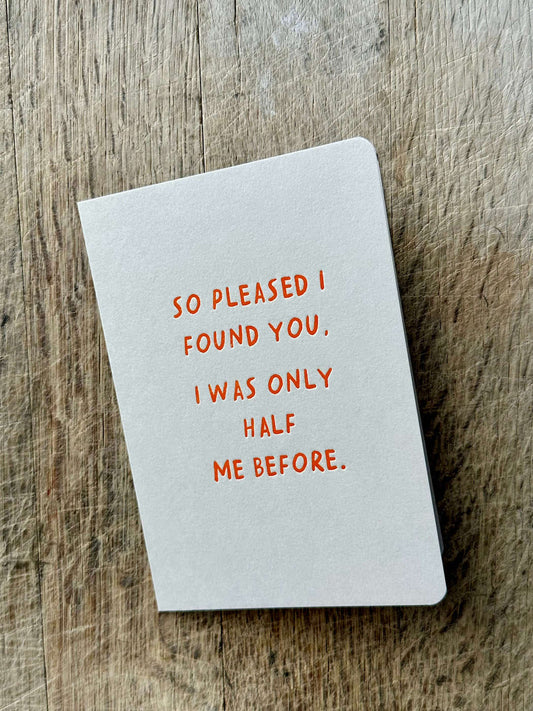 SO PLEASED I
FOUND YOU,
I WAS ONLY
HALF
ME BEFORE.